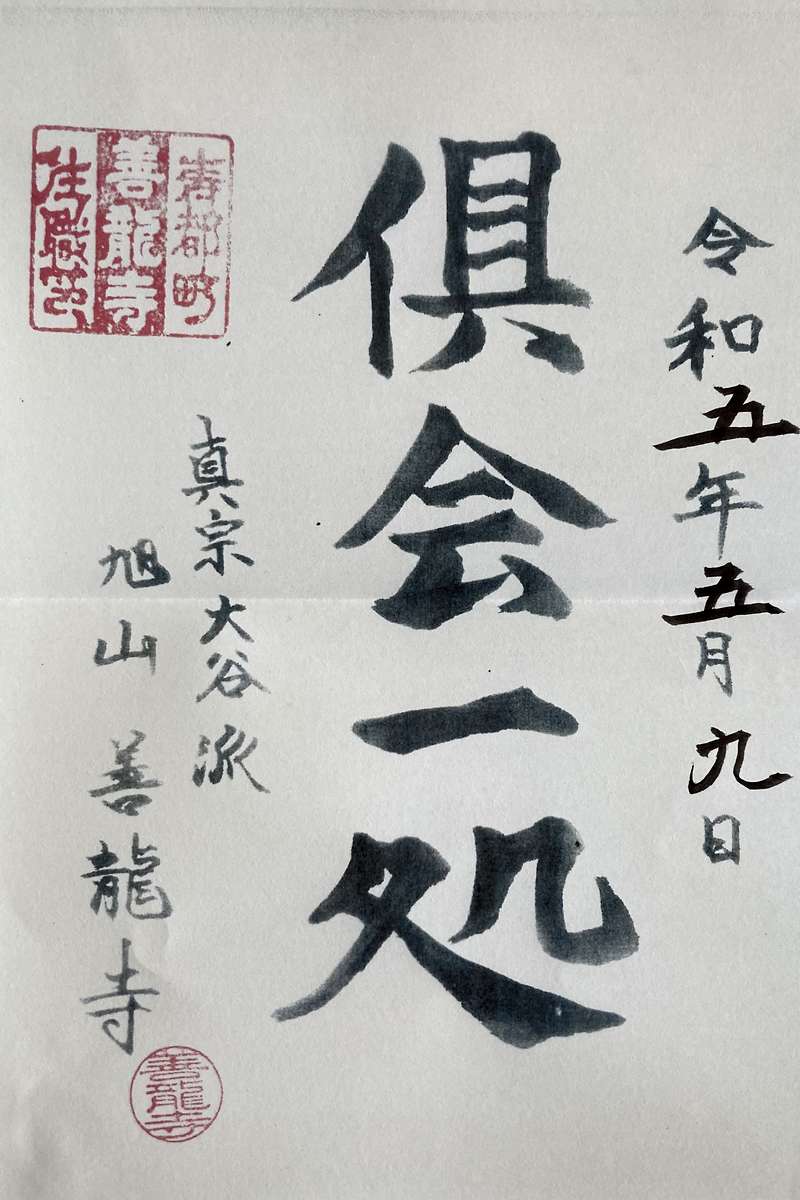 令和五年五月九日
倶会一処
真宗大谷派
旭山 善龍寺
寿都町
善龍寺
住職印
善龍寺